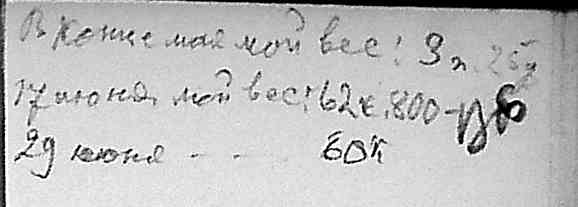 В конце мая мой вес: 3 п. 25
17 июня, мой вес: 62 к. 800
29 июня - - - 60 к